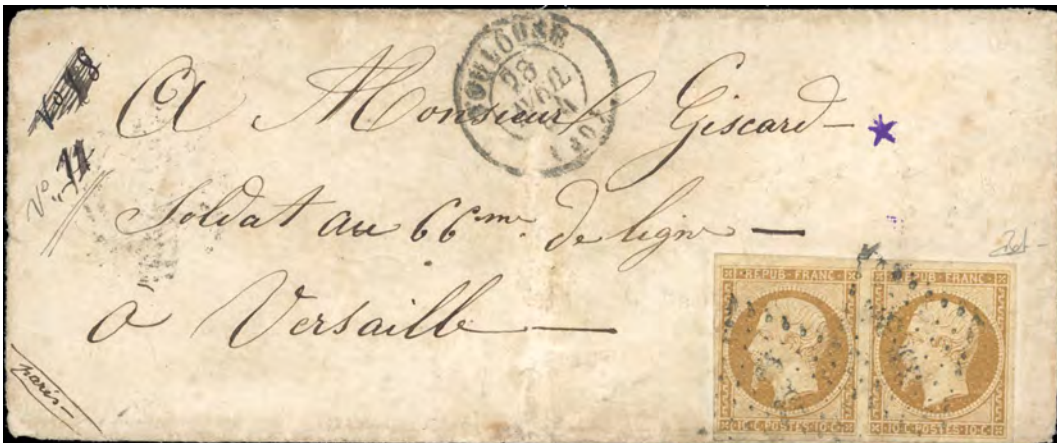 TOULOUSE
28
AVRIL
A Monsieur Giscard
Soldat au 66me de ligne
à Versaille
paris
REPUB FRANC
10 C POSTES 10 C
UB FRANC
10 C POSTES 10 C